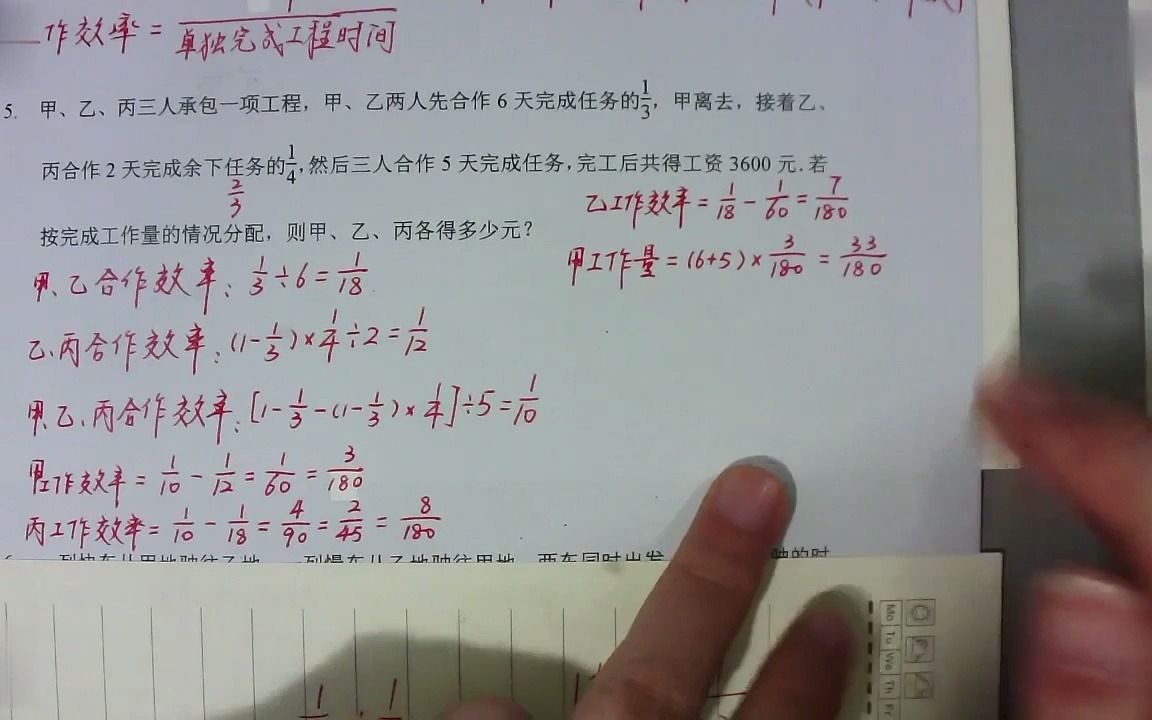 作效率 = 1/单独完成工程时间
5. 甲、乙、丙三人承包一项工程，甲、乙两人先合作 6 天完成任务的1/3，甲离去，接着乙、
丙合作 2 天完成余下任务的1/4，然后三人合作 5 天完成任务，完工后共得工资 3600 元. 若
2/3
按完成工作量的情况分配，则甲、乙、丙各得多少元？
甲、乙合作效率：1/3÷6=1/18
乙、丙合作效率：(1-1/3)×1/4÷2=1/12
甲、乙、丙合作效率：[1-1/3-(1-1/3)×1/4]÷5=1/10
甲工作效率=1/10-1/12=1/60=3/180
丙工作效率=1/10-1/18=4/90=2/45=8/180
乙工作效率=1/18-1/60=7/180
甲工作量=(6+5)×3/180=33/180
Mo Tu We Th Fr